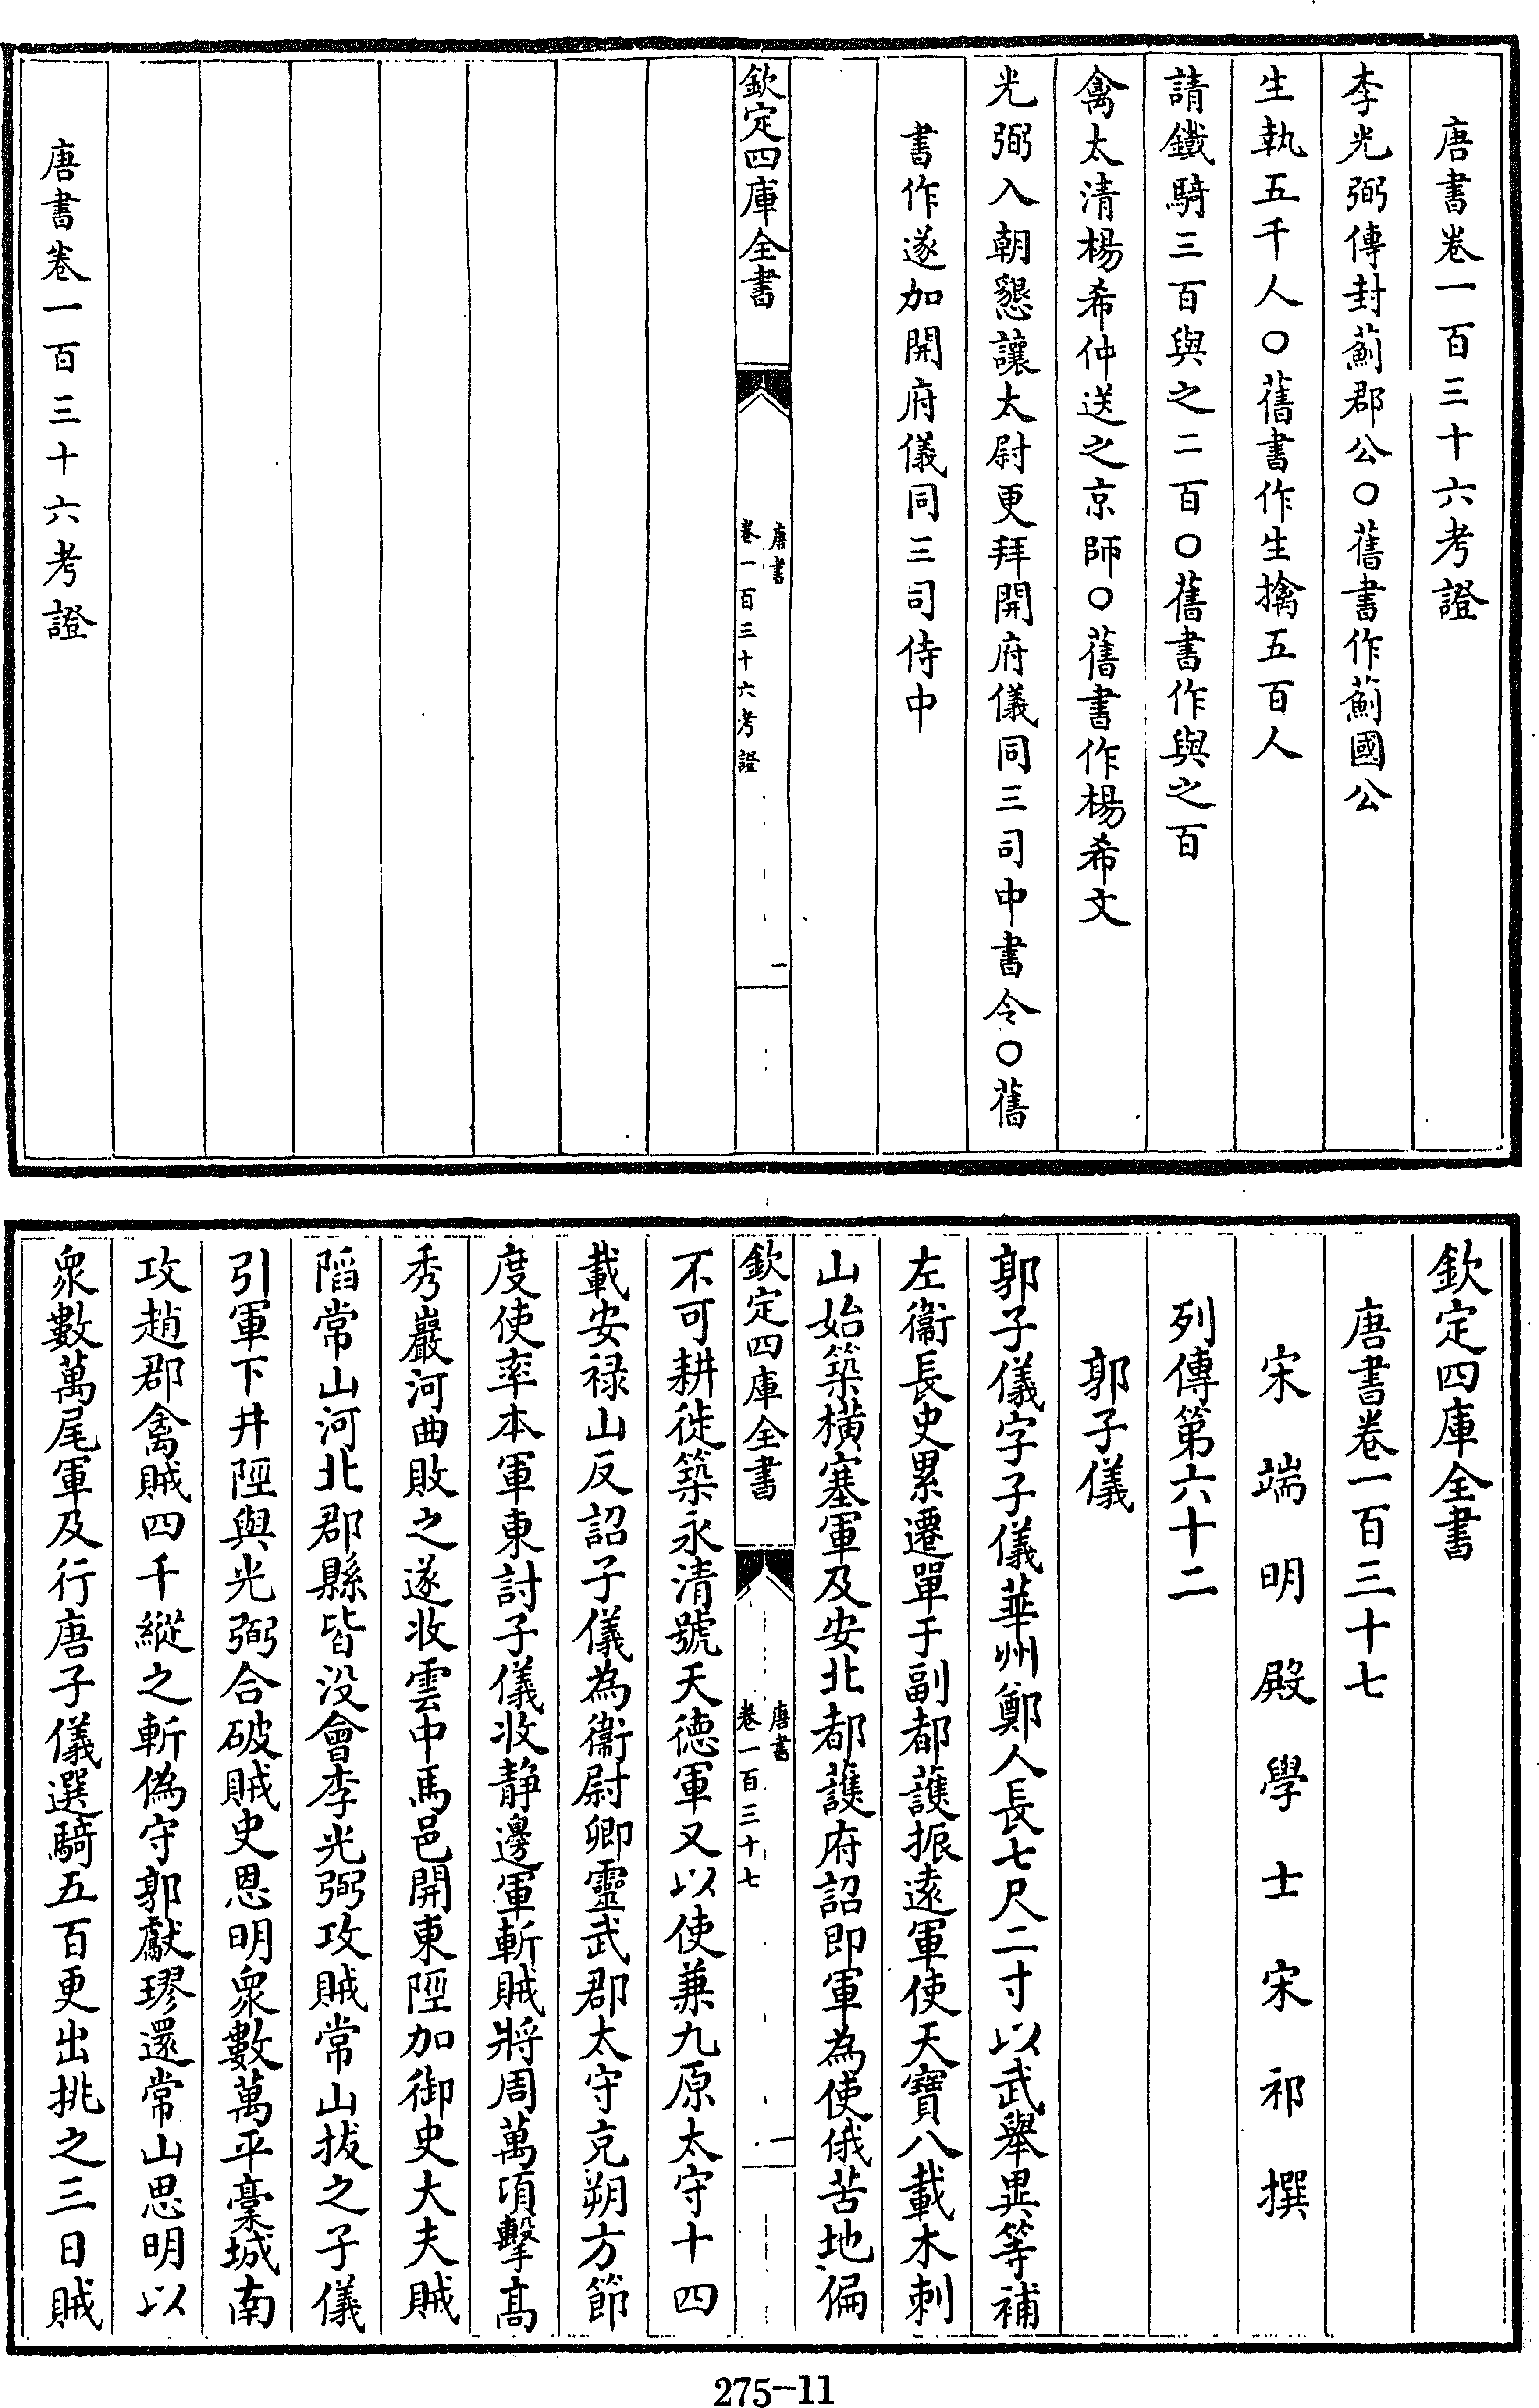 唐書卷一百三十六考證
李光弼傳封薊郡公○舊書作薊國公
生執五千人○舊書作生擒五百人
請鐵騎三百與之二百○舊書作與之百
禽太清楊希仲送之京師○舊書作楊希文
光弼入朝懇讓太尉更拜開府儀同三司中書令○舊
書作遂加開府儀同三司侍中
欽定四庫全書
唐書
卷一百三十六考證
一
唐書卷一百三十六考證
欽定四庫全書
唐書卷一百三十七
宋端明殿學士宋祁撰
列傳第六十二
郭子儀
郭子儀字子儀華州鄭人長七尺二寸以武舉異等補
左衞長史累遷單于副都護振遠軍使天寶八載木刺
山始築橫塞軍及安北都護府詔即軍為使俄苦地偏
欽定四庫全書
唐書
卷一百三十七
一
不可耕徙築永清號天德軍又以使兼九原太守十四
載安祿山反詔子儀為衞尉卿靈武郡太守充朔方節
度使率本軍東討子儀收静邊軍斬賊將周萬頃擊高
秀巖河曲敗之遂收雲中馬邑開東陘加御史大夫賊
䧟常山河北郡縣皆没會李光弼攻賊常山拔之子儀
引軍下井陘與光弼合破賊史思明衆數萬平藁城南
攻趙郡禽賊四千縱之斬偽守郭獻璆還常山思明以
衆數萬尾軍及行唐子儀選騎五百更出挑之三日賊
275-11